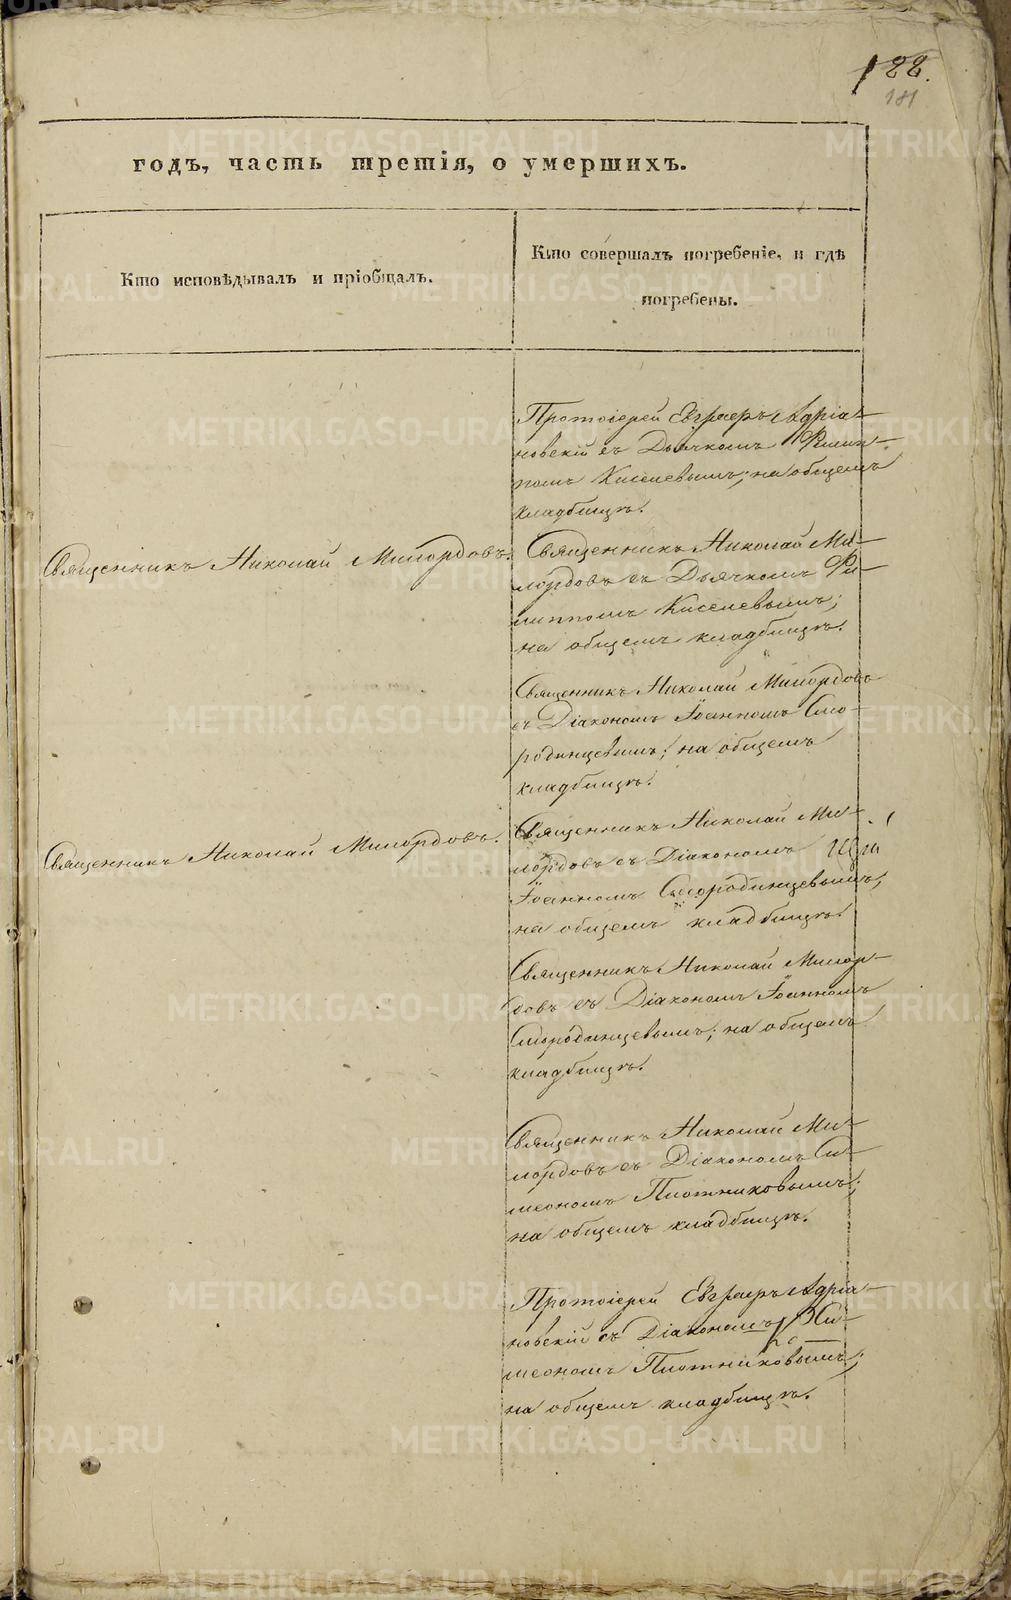 188.
181
годъ, часть третія, о умершихъ.
Кто исповѣдывалъ и пріобщалъ.
Кто совершалъ погребеніе, и гдѣ
погребены.
Протоіерей Евграфъ Адріа-
новскій съ Дьячкомъ Филип-
помъ Киселевымъ; на общемъ
кладбищѣ.
Священникъ Николай Милордовъ.
Священникъ Николай Ми-
лордовъ съ Дьячкомъ Фи-
липпомъ Киселевымъ;
на общемъ кладбищѣ.
Священникъ Николай Милордовъ
съ Діакономъ Іоанномъ Смо-
родинцевымъ; на общемъ
кладбищѣ.
Священникъ Николай Милордовъ.
Священникъ Николай Ми-
лордовъ съ Діакономъ
Іоанномъ Смородинцевымъ;
на общемъ кладбищѣ.
Священникъ Николай Милор-
довъ съ Діакономъ Іоанномъ
Смородинцевымъ; на общемъ
кладбищѣ.
Священникъ Николай Ми-
лордовъ съ Діакономъ Си-
меономъ Плотниковымъ;
на общемъ кладбищѣ.
Протоіерей Евграфъ Адріа-
новскій съ Діакономъ Си-
меономъ Плотниковымъ;
на общемъ кладбищѣ.
METRIKI.GASO-URAL.RU